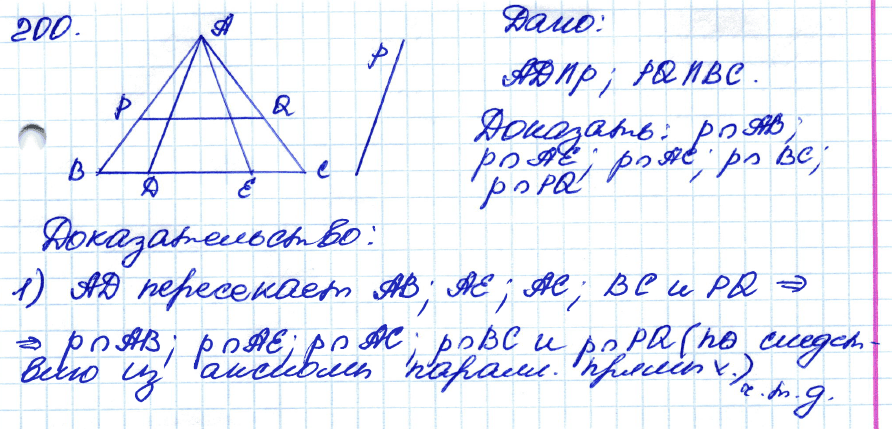 200.
Дано:
AD || p; PQ || BC.
Доказать: p∩AB;
p∩AE; p∩AC; p∩BC;
p∩PQ
A
p
P
Q
B
D
E
C
Доказательство:
1) AD пересекает AB; AE; AC; BC и PQ ⇒
⇒ p∩AB; p∩AE; p∩AC; p∩BC и p∩PQ (по следст-
вию из аксиомы паралл. прямых.)
ч.т.д.